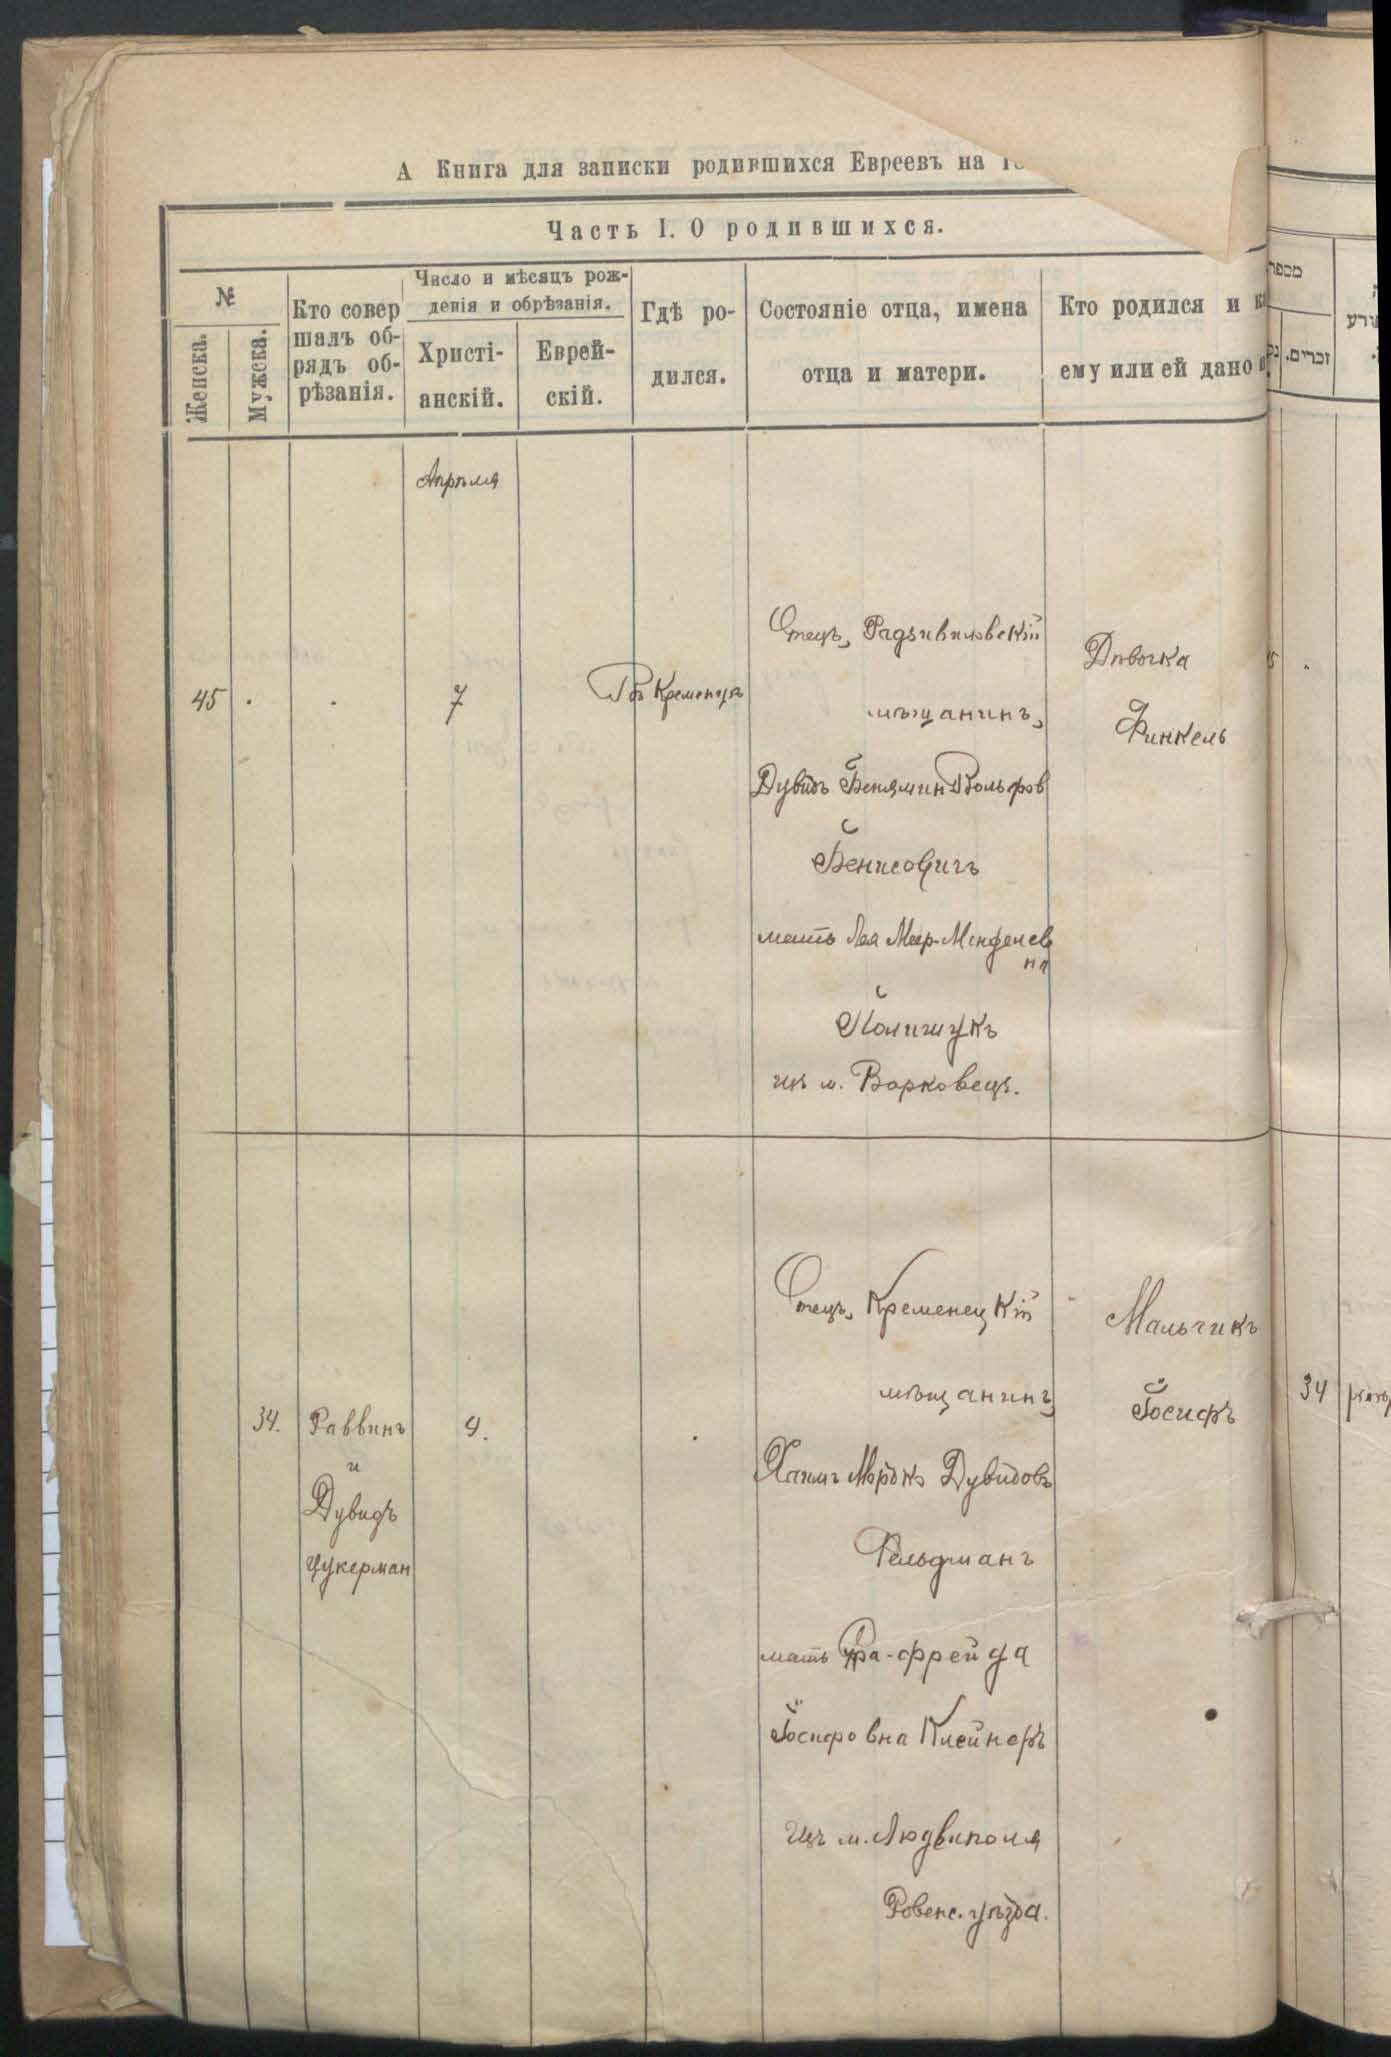 А Книга для записки родившихся Евреевъ на
Часть I. О родившихся.
№
Женска.
Мужска.
Кто совер
шалъ об-
рядъ об-
рѣзанія.
Число и мѣсяцъ рож-
денія и обрѣзанія.
Христі-
анскій.
Еврей-
скій.
Гдѣ ро-
дился.
Состояніе отца, имена
отца и матери.
Кто родился и
ему или ей дано
Апрѣля
45
7
Въ Кременцѣ
Отецъ, Радзивиловскій
мѣщанинъ,
Дувидъ Бенямин Вольфов
Бенисовичъ
мать Лея Меер-Менделев
на
Полищукъ
изъ м. Варковецъ.
Дѣвочка
Финкель
34.
Раввинъ
и
Дувидъ
Цукерман
9.
Отецъ, Кременецкій
мѣщанинъ,
Хаимъ Мордко Дувидовъ
Фельдманъ
мать фрейда
Іосифовна Клейнеръ
изъ м. Людвиполя
Ровенс. уѣзда.
Мальчикъ
Іосифъ
זכרים.
34